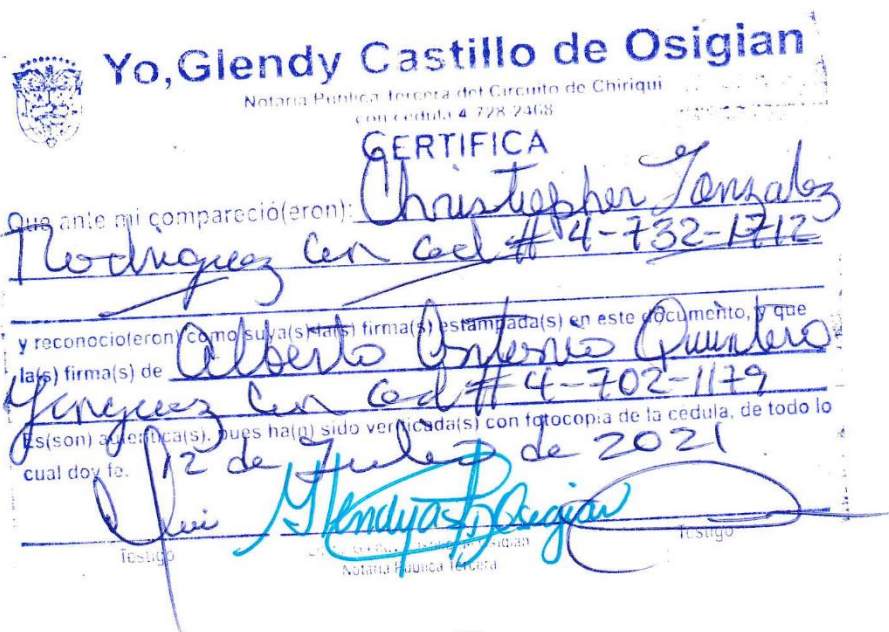 Yo, Glendy Castillo de Osigian
Notaria Pública Tercera del Circuito de Chiriquí
con cédula 4-728-2468
CERTIFICA
Que ante mi compareció(eron): Christiopher Gonzalez
Rodriguez Con Ced # 4-732-1712
y reconocio(eron) como suya(s) la(s) firma(s) estampada(s) en este documento, y que
la(s) firma(s) de Alberto Antonio Quintero
Con Ced # 4-702-1179
Es(son) autentica(s), pues ha(n) sido verificada(s) con fotocopia de la cedula, de todo lo
cual doy fe. 12 de Julio de 2021
Testigo Testigo
Notaria Pública Tercera